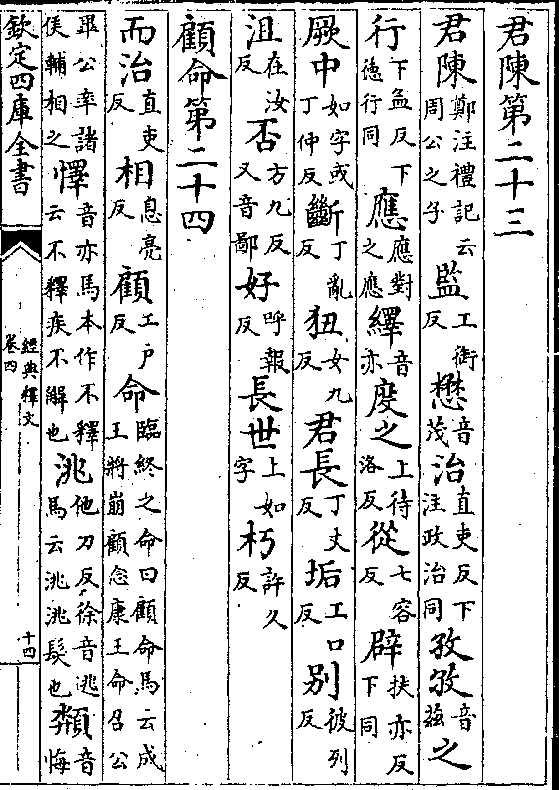 君陳第二十三
君陳鄭注禮記云周公之子監工銜反懋音茂治直吏反下注政治同孜孜音茲之
行下孟反下德行同應應對之應繹音亦度之上待洛反從七容反辟扶亦反下同
厥中如字或丁仲反斷丁亂反狃女九反君長丁丈反垢工口反別彼列反
沮在汝反否方九反又音鄙好呼報反長世上如字朽許久反
顧命第二十四
而治直吏反相息亮反顧工戶反命臨終之命曰顧命馬云成王將崩顧念康王命召公
畢公率諸侯輔相之懌音亦馬本作不釋云不釋疾不解也洮他刀反徐音逃馬云洮洮髮也頮音悔
欽定四庫全書
經典釋文
卷四
十四